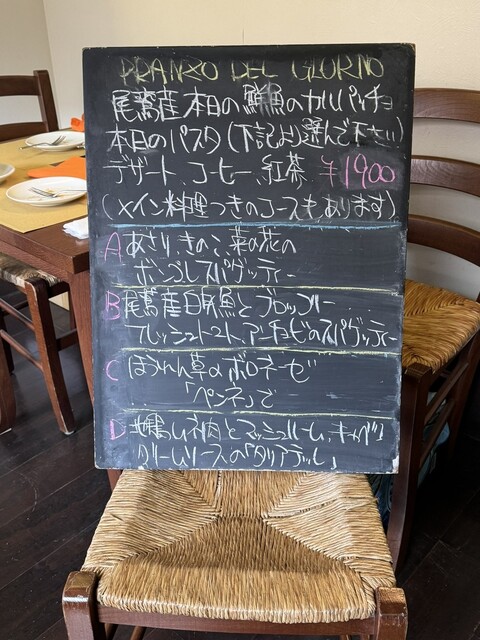 PRANZO DEL GIORNO
尾鷲産本日の鮮魚のカルパッチョ
本日のパスタ(下記より選んで下さい)
デザート、コーヒー、紅茶 ¥1900
(メイン料理つきのコースもあります)
A あさり、きのこ、菜の花の
ボンゴレスパゲッティー
B 尾鷲産白身魚とブロッコリー
フレッシュトマト、アンチョビのスパゲッティー
C ほうれん草のボロネーゼ
「ペンネ」で
D 肉とマッシュルーム、キャベツ
クリームソースの「タリアテッレ」